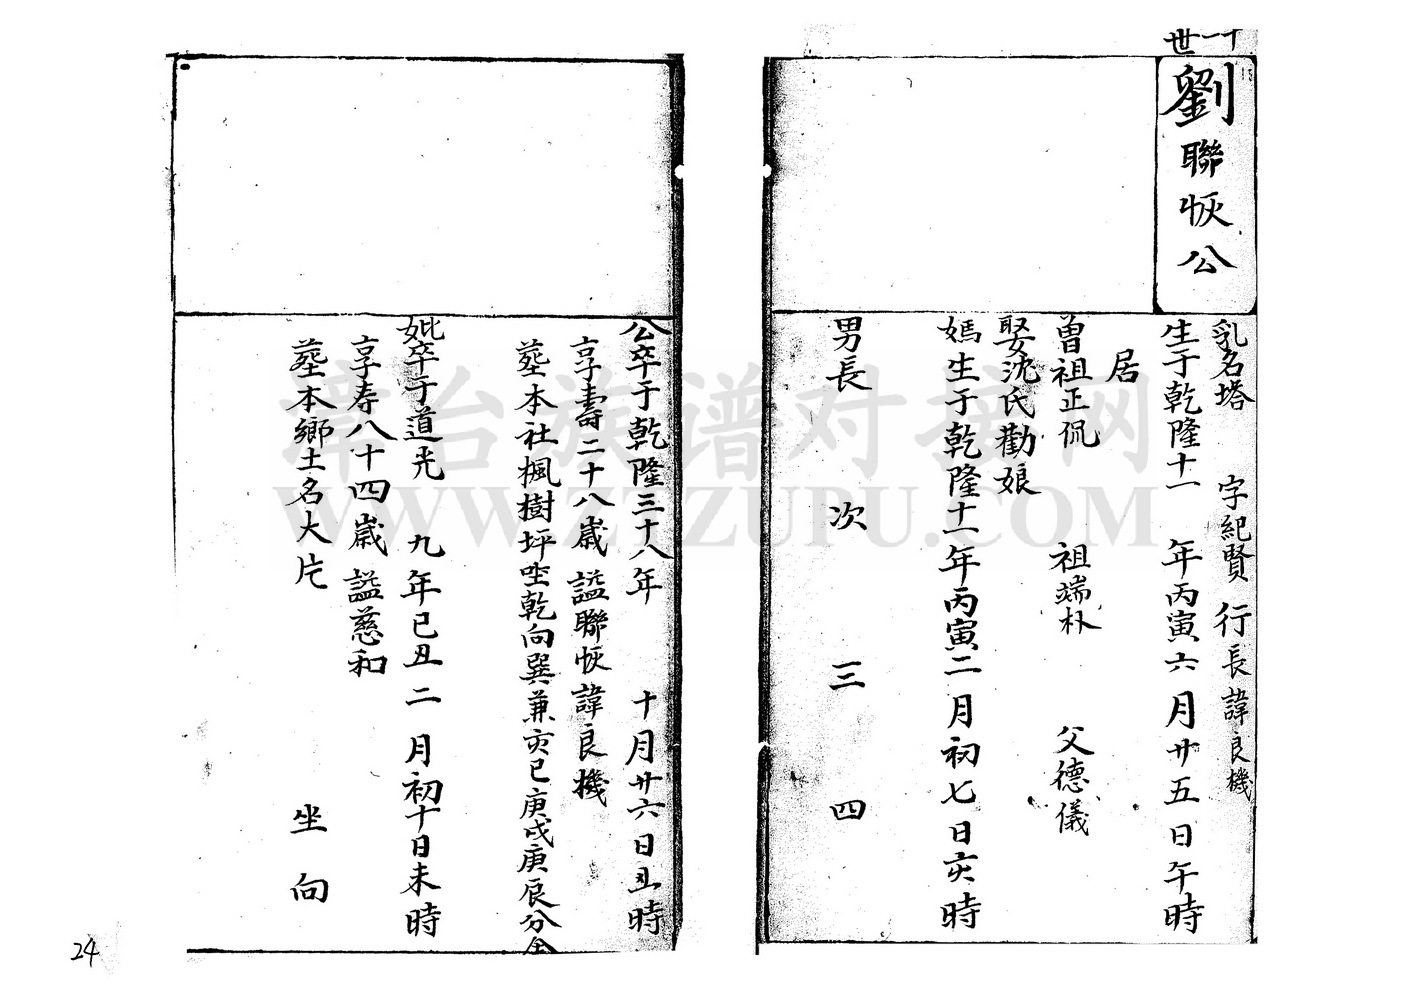 十一世
劉聯恢公
乳名塔 字紀賢 行長諱良機
生于乾隆十一 年丙寅六月廿五日午時
居
曾祖正侃 祖端朴 父德儀
娶沈氏勸娘
媽生于乾隆十一年丙寅二月初七日亥時
男長 次 三 四
公卒于乾隆三十八年 十月廿六日丑時
享壽二十八歲 諡聯恢諱良機
塟本社楓樹坪坐乾向巽兼亥巳庚戌庚辰分金
妣卒于道光 九年己丑二月初十日未時
享寿八十四歲 諡慈和
塟本鄉土名大片 坐 向
24
漳台族谱对接网
WWW.ZTZUPU.COM